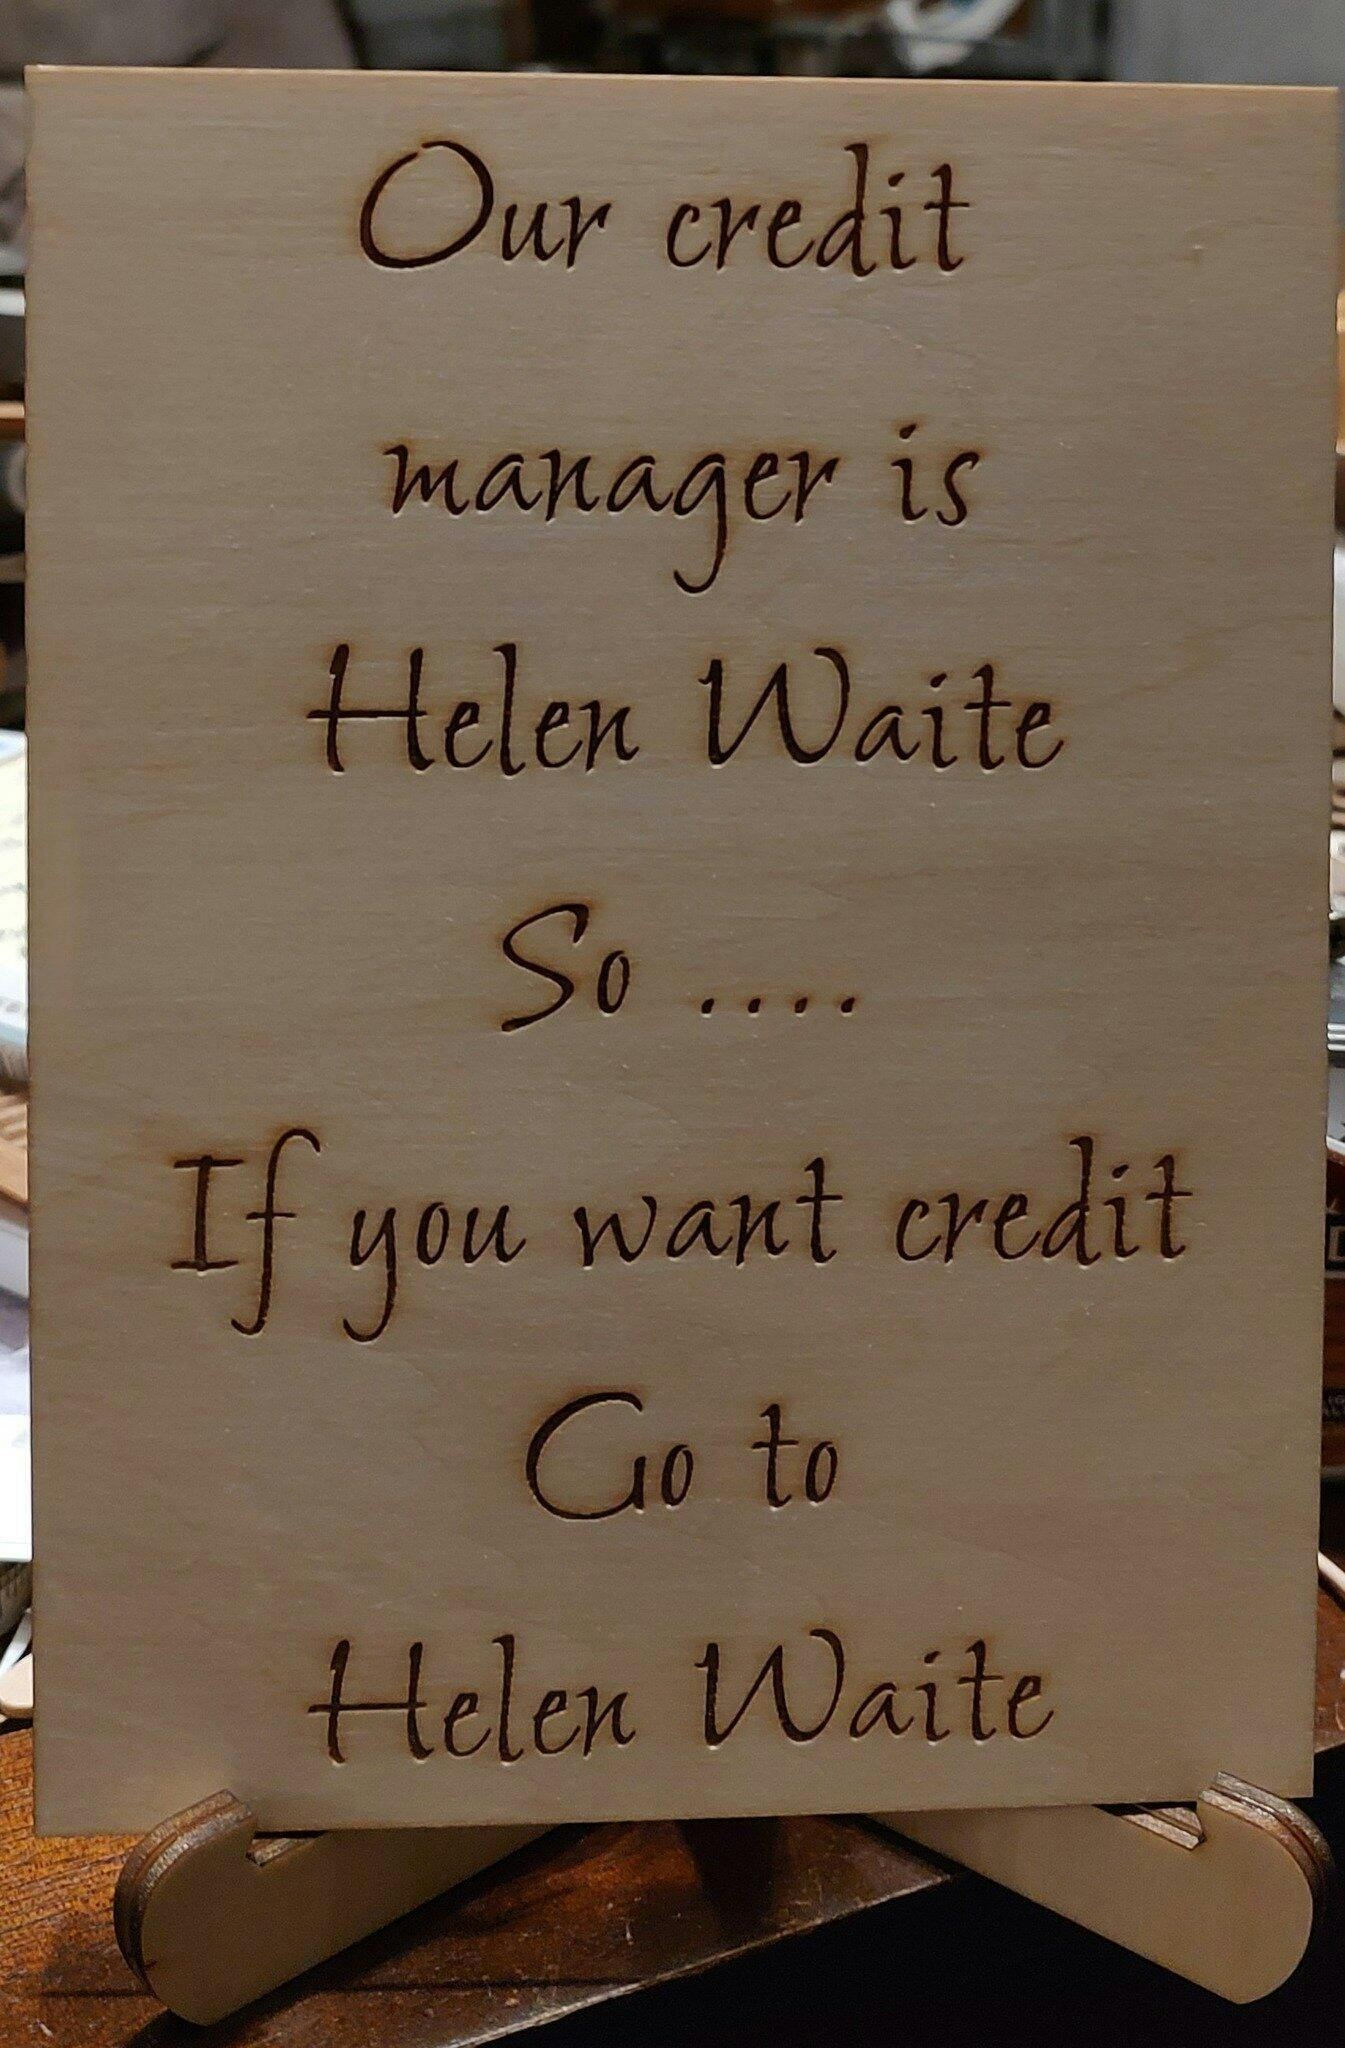 Our credit
manager is
Helen Waite
So ....
If you want credit
Go to
Helen Waite